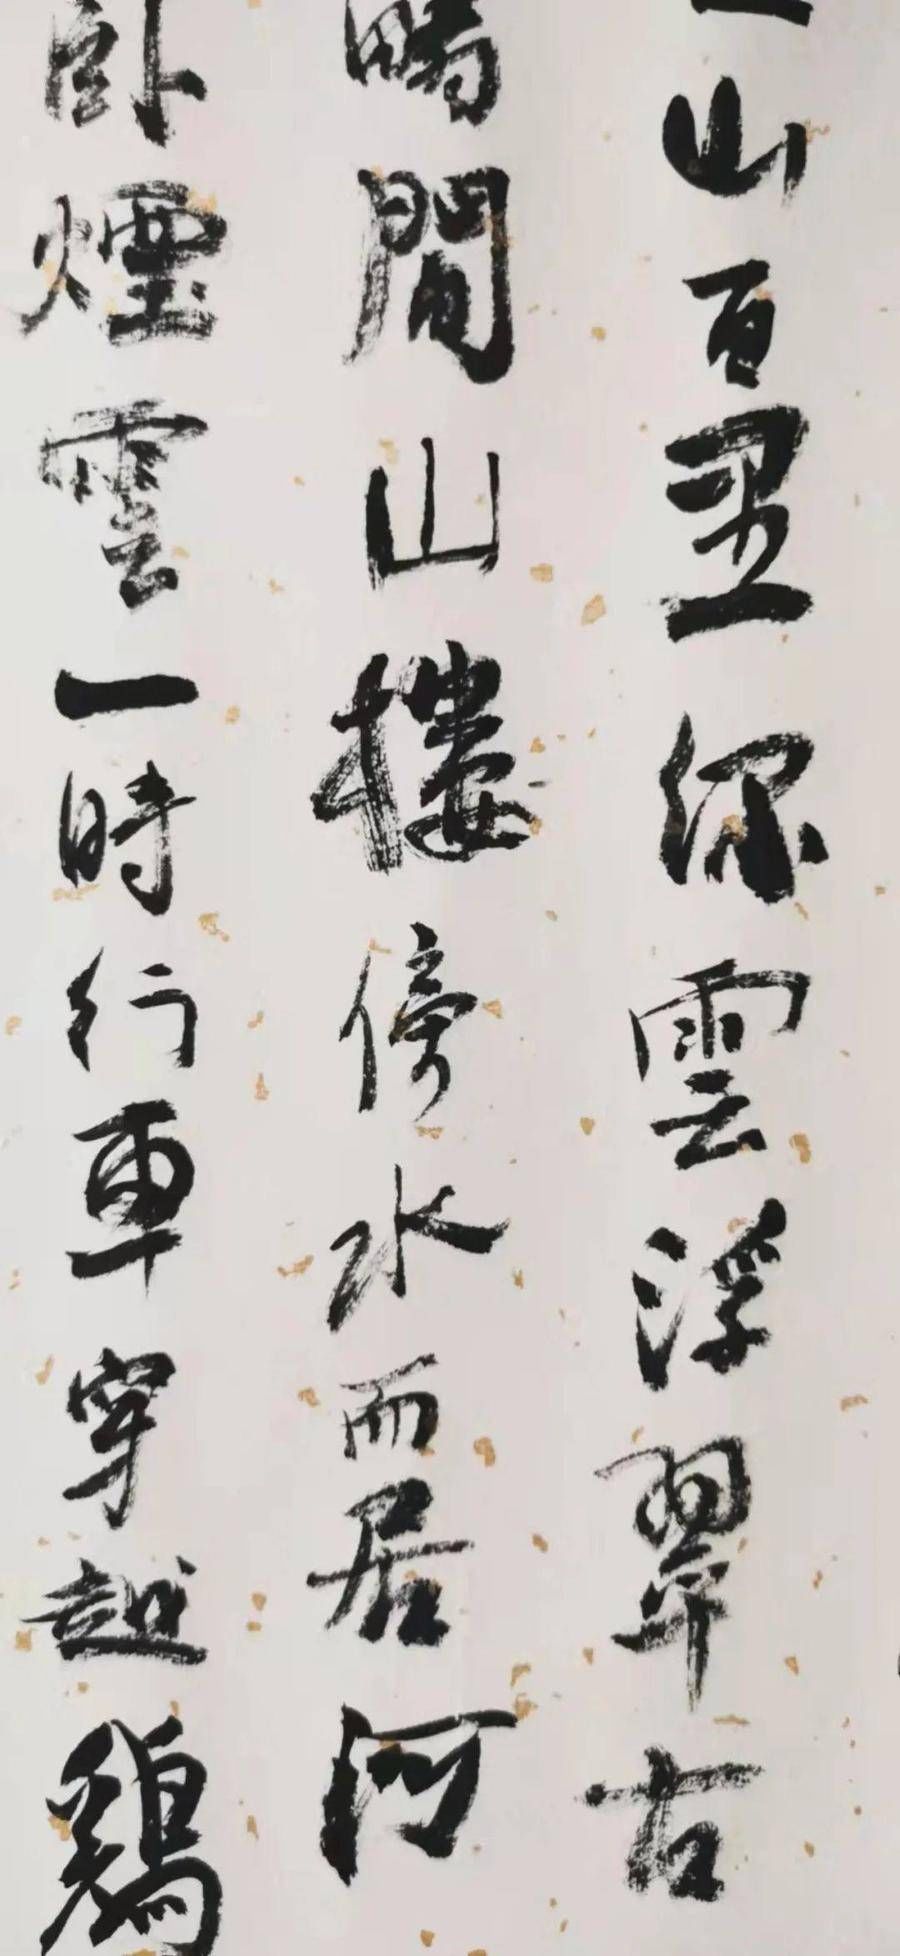 山百里深雲浮翠古
間山樓傍水而居河
卧煙雲一時行車穿越鷄